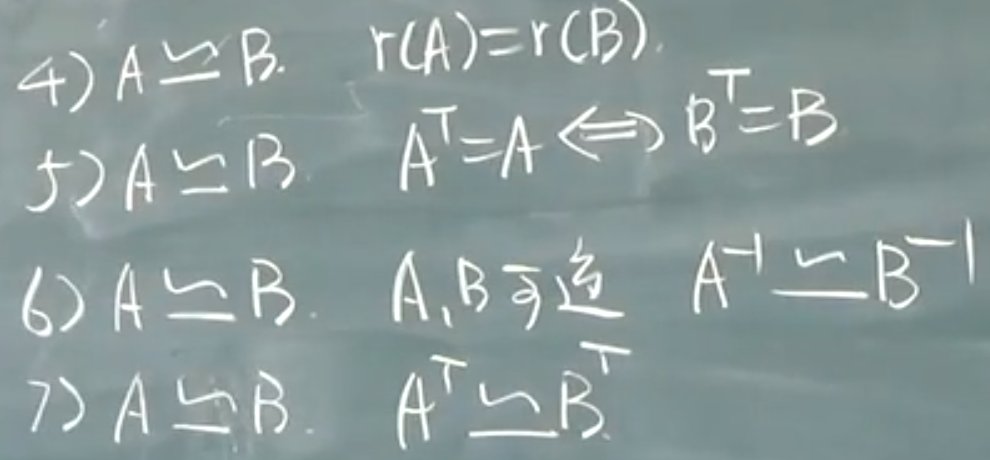 4) A ≃ B. r(A)=r(B).
5) A ≃ B. Aᵀ=A ⟺ Bᵀ=B
6) A ≃ B. A,B可逆 A⁻¹ ≃ B⁻¹
7) A ≃ B. Aᵀ ≃ Bᵀ.